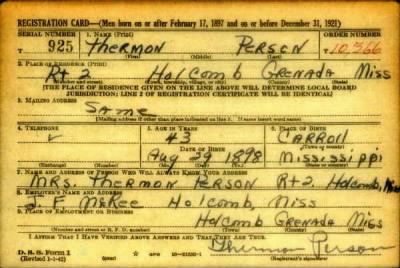 REGISTRATION CARD—(Men born on or after February 17, 1897 and on or before December 31, 1921)
SERIAL NUMBER 1. NAME (Print) ORDER NUMBER
T 925 Thermon Person 10,366
(First) (Middle) (Last)
2. PLACE OF RESIDENCE (Print)
Rt 2 Holcomb Grenada Miss
(Number and street) (Town, township, village, or city) (County) (State)
[THE PLACE OF RESIDENCE GIVEN ON THE LINE ABOVE WILL DETERMINE LOCAL BOARD
JURISDICTION; LINE 2 OF REGISTRATION CERTIFICATE WILL BE IDENTICAL]
3. MAILING ADDRESS
Same
[Mailing address if other than place indicated on line 2. If same insert word same]
4. TELEPHONE 5. AGE IN YEARS 6. PLACE OF BIRTH
43 Carroll
DATE OF BIRTH (Town or county)
Aug 29 1898 Mississippi
(Exchange) (Number) (Mo.) (Day) (Yr.) (State or country)
7. NAME AND ADDRESS OF PERSON WHO WILL ALWAYS KNOW YOUR ADDRESS
Mrs. Thermon Person Rt 2. Holcomb, Miss
8. EMPLOYER'S NAME AND ADDRESS
J. F. McKee Holcomb, Miss
9. PLACE OF EMPLOYMENT OR BUSINESS
Holcomb Grenada Miss
(Number and street or R. F. D. number) (Town) (County) (State)
I AFFIRM THAT I HAVE VERIFIED ABOVE ANSWERS AND THAT THEY ARE TRUE.
Thermon Person
D. S. S. Form 1
(Revised 1-1-42) (over) (Registrant's signature)